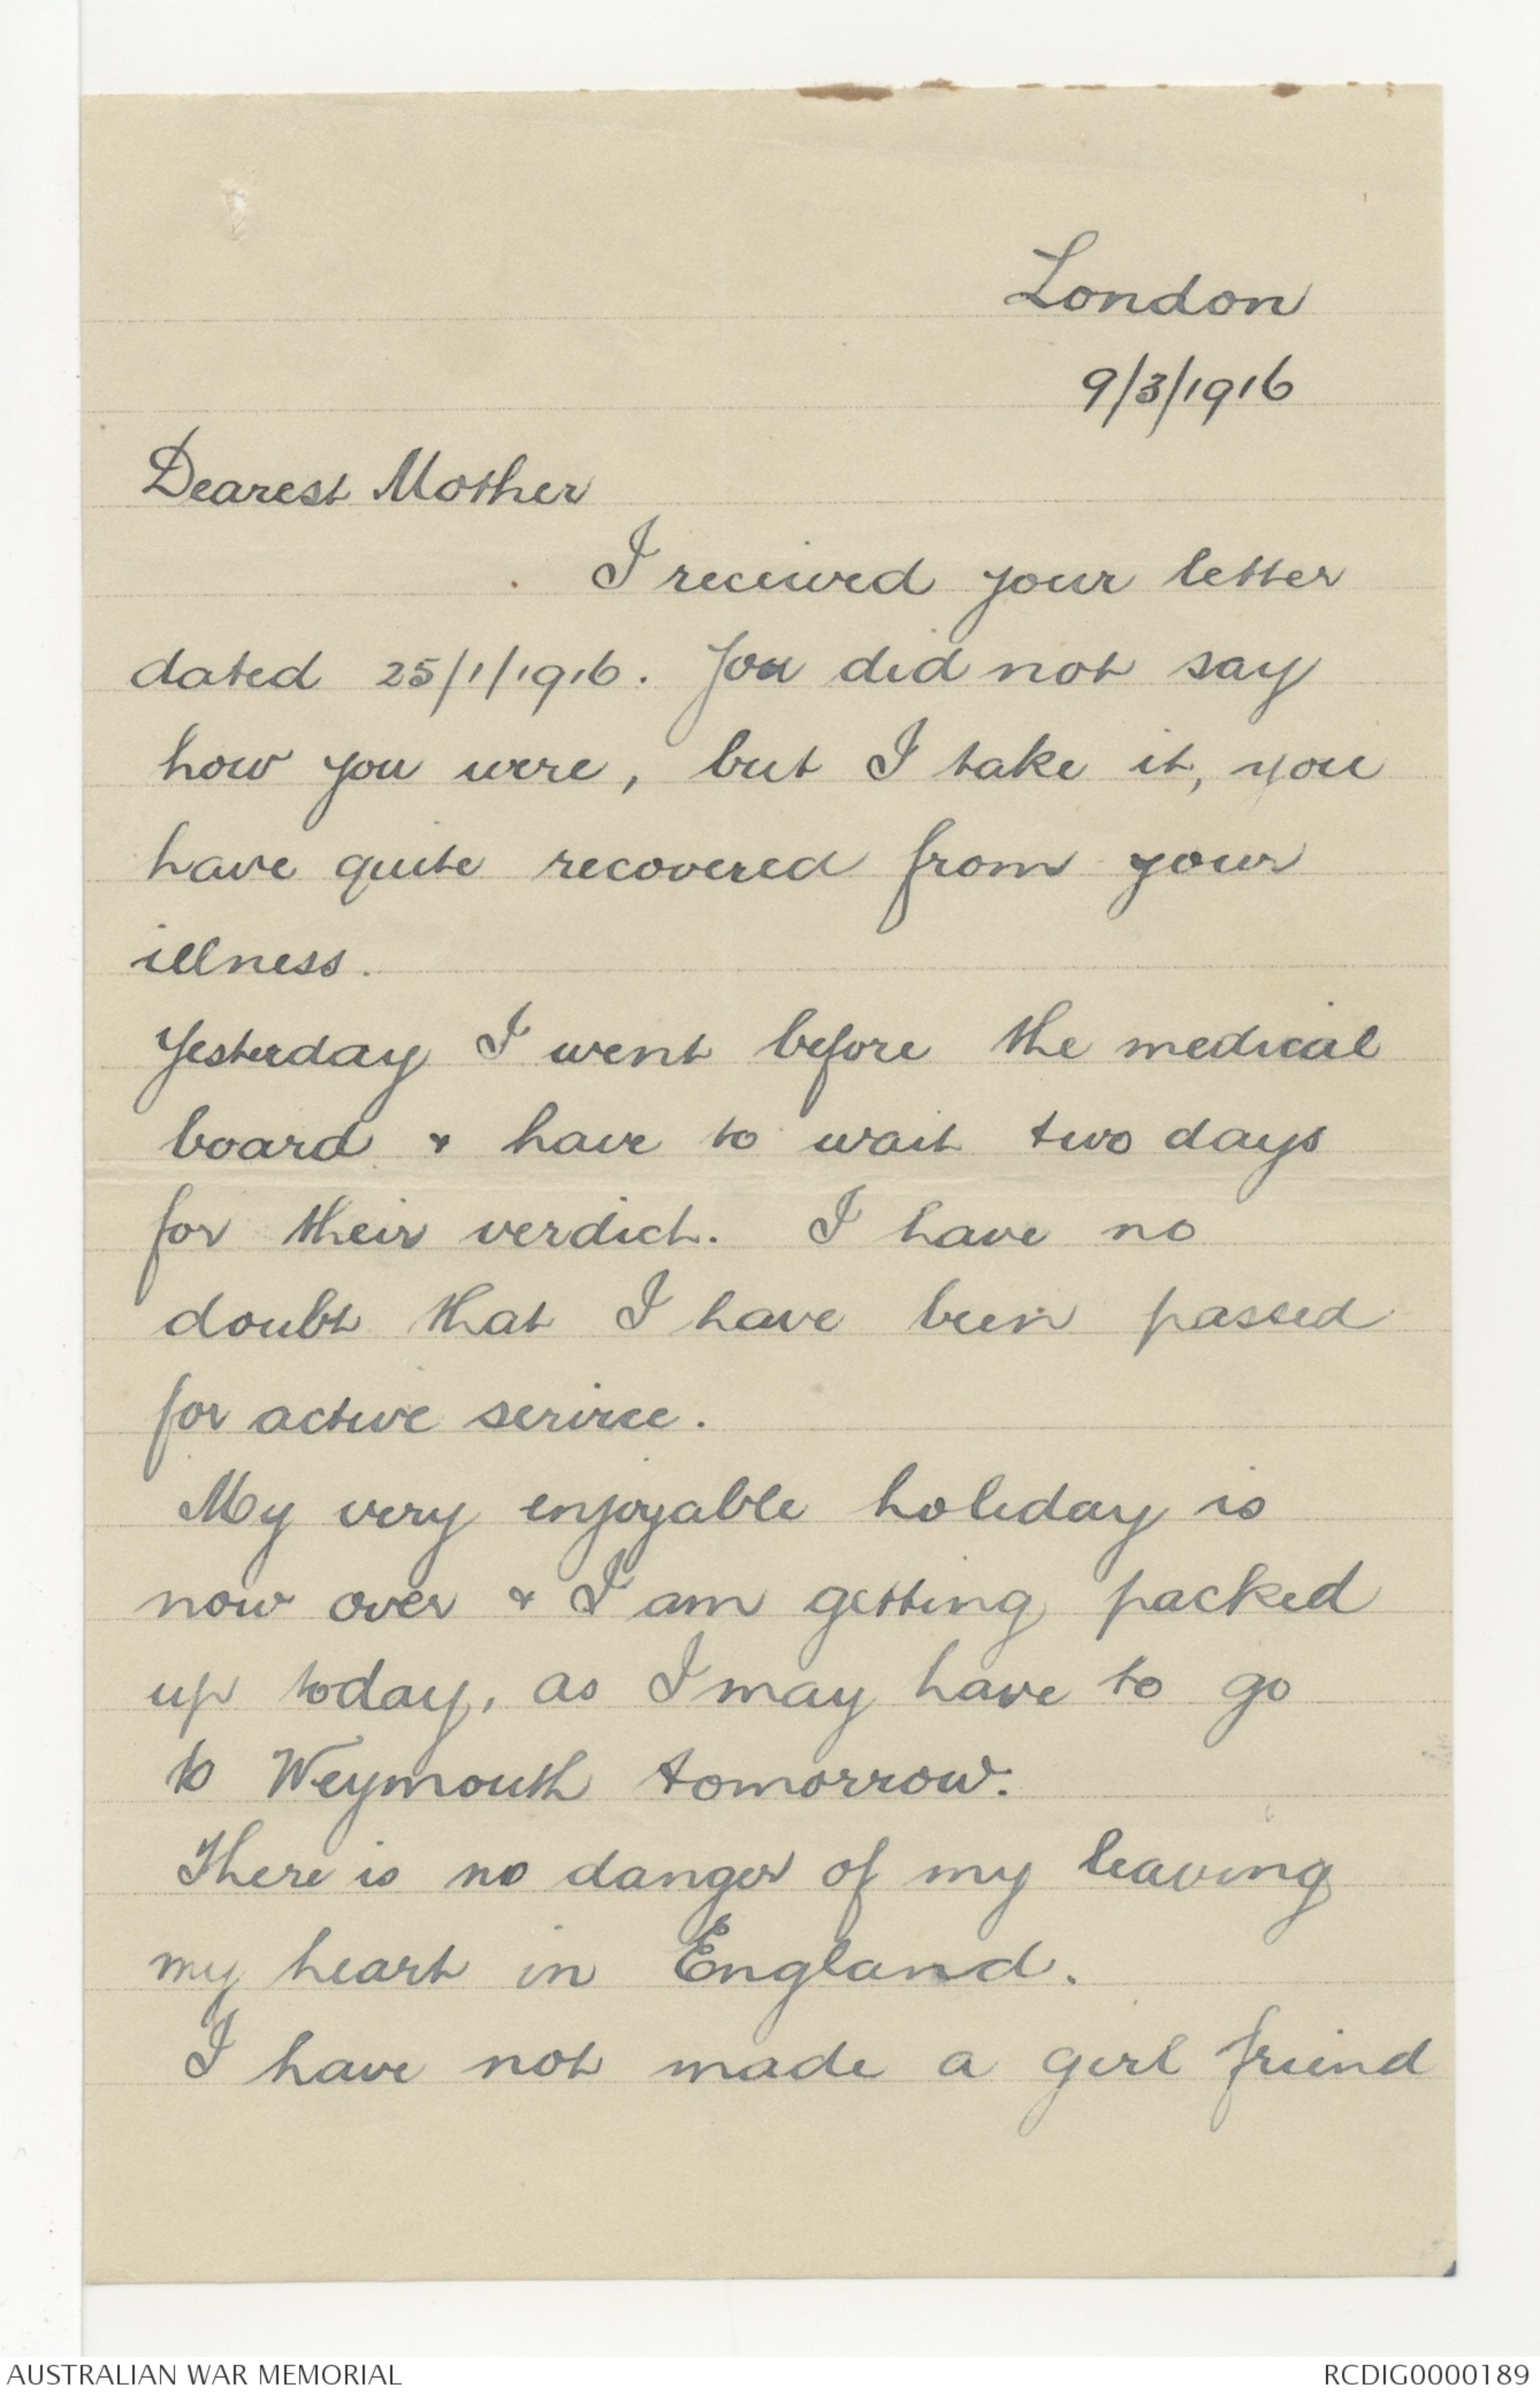 London
9/3/1916
Dearest Mother
I received your letter
dated 25/1/1916. You did not say
how you were, but I take it, you
have quite recovered from your
illness.
Yesterday I went before the medical
board & have to wait two days
for their verdict. I have no
doubt that I have been passed
for active service.
My very enjoyable holiday is
now over & I am getting packed
up today, as I may have to go
to Weymouth tomorrow.
There is no danger of my leaving
my heart in England.
I have not made a girl friend
AUSTRALIAN WAR MEMORIAL
RCDIG0000189